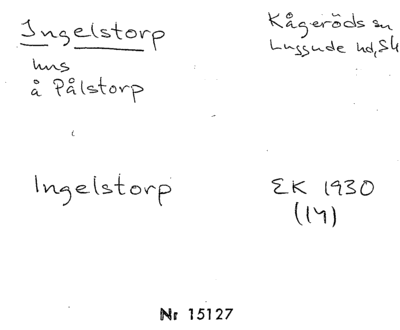 Ingelstorp
hus
å Pålstorp
Kågeröds sn
Luggude hd, Sk
Ingelstorp
EK 1930
(14)
Nr 15127